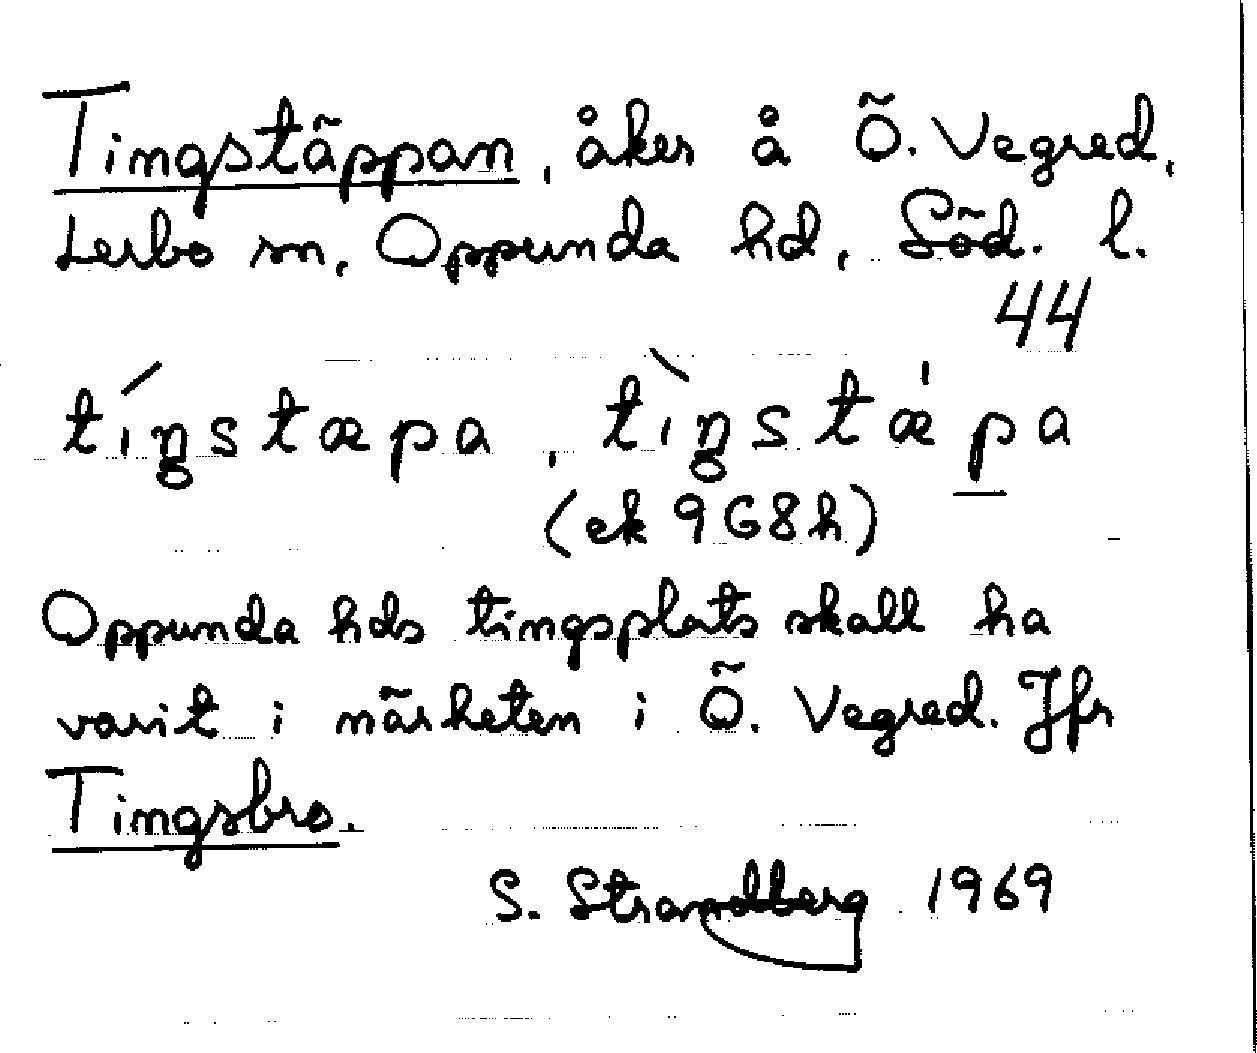 Tingstäppan, åker å Ö. Vegred,
Lerbo sn, Oppunda hd, Söd. l.
44
tíŋstæpa, tìŋstæ̍pa
(ek 968h)
Oppunda hds tingsplats skall ha
varit i närheten i Ö. Vegred. Jfr
Tingsbro.
S. Strandberg 1969